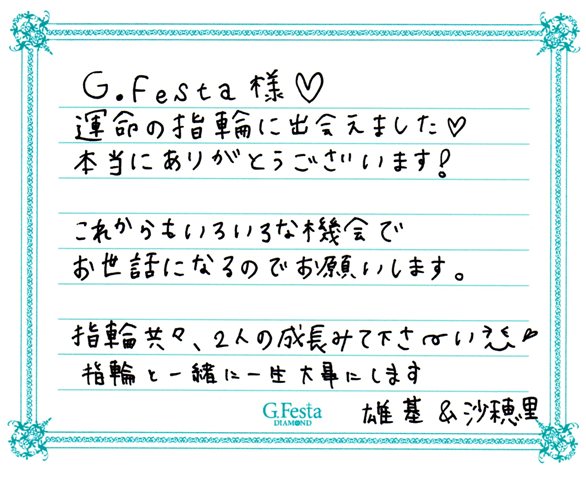 G.Festa様♡
運命の指輪に出会えました♡
本当にありがとうございます!
これからもいろいろな機会で
お世話になるのでお願いします。
指輪共々、2人の成長みて下さーい
指輪と一緒に一生大事にします
雄基&沙穂里
G.Festa
DIAMOND